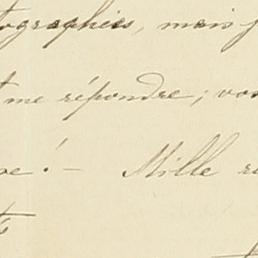 tographies, mais j
t me répondre ; vou
ne ! — Mille r
ts